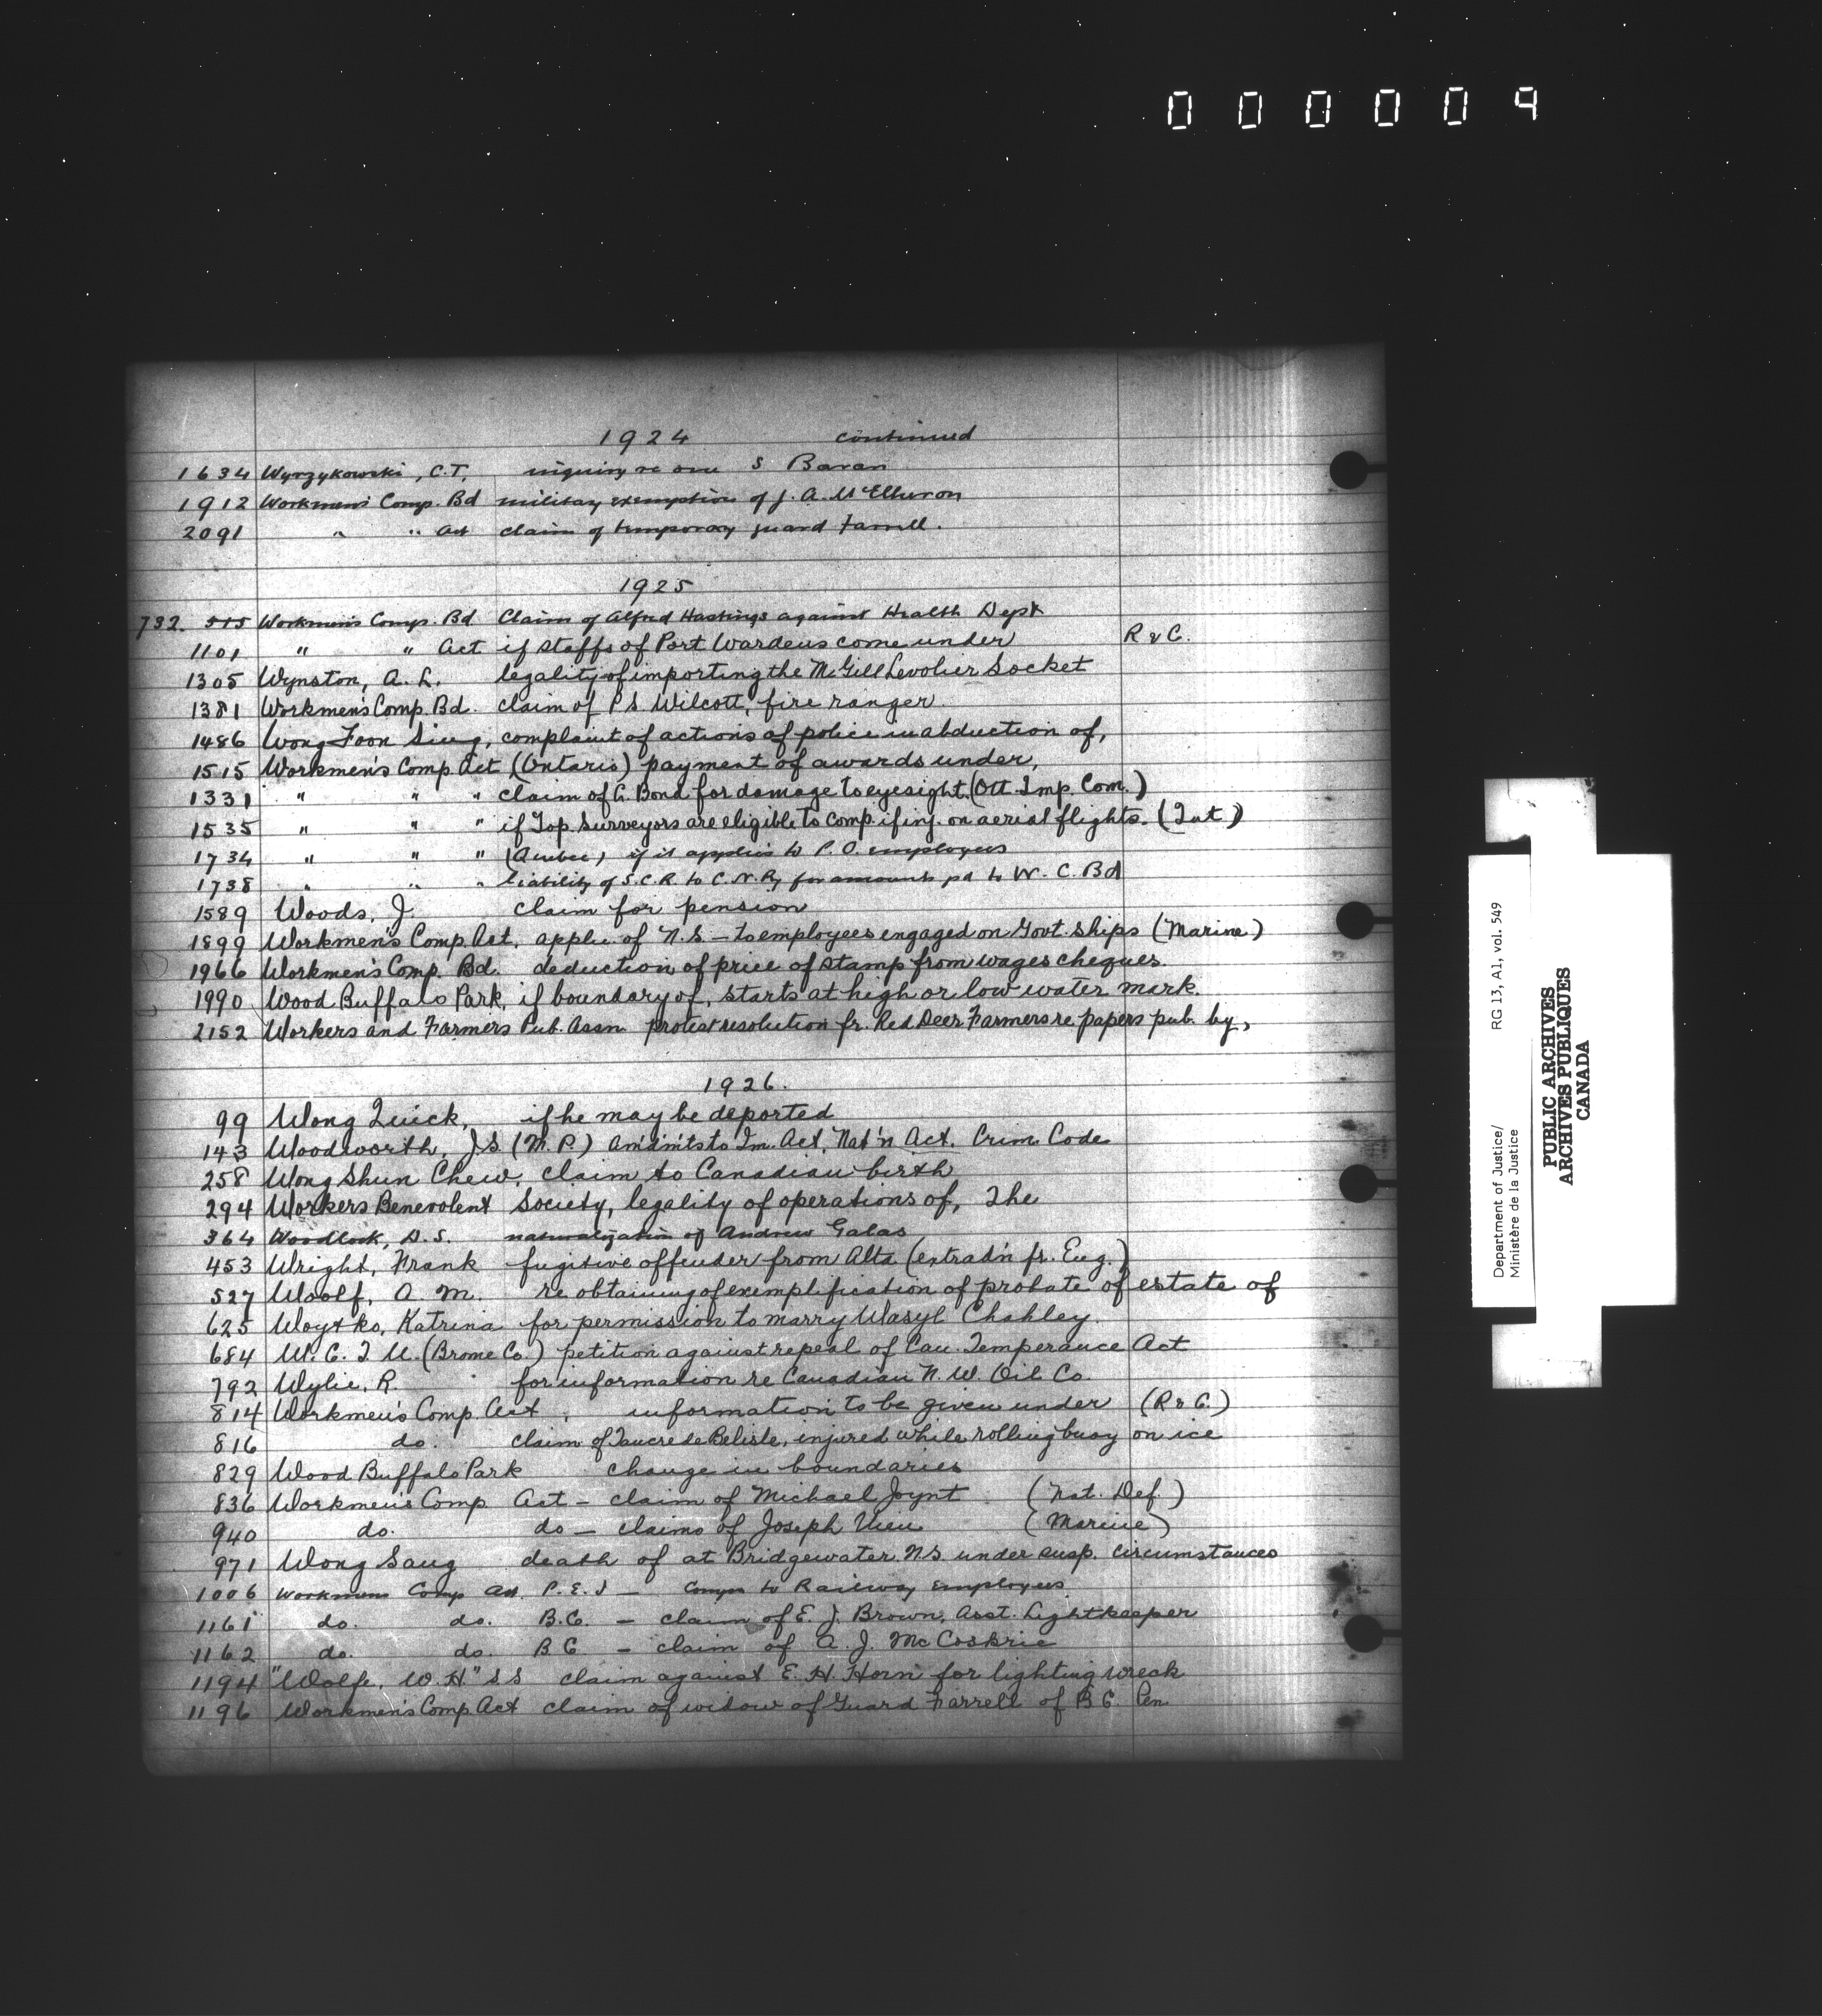 000009
1924 continued
1634 Wyrzykowski, C.T, inquiry re one S Baran
1912 Workmen's Comp. Bd military exemption of J. A. McElheron
2091 " " Act claim of temporary guard Farrell.
1925
732. 515 Workmen's Comp. Bd. Claim of Alfred Hastings against Health Dept
1101 " " Act if staffs of Port Wardens come under R & C.
1305 Wynston, A. L. legality of importing the McGill Levolier Socket
1381 Workmen's Comp. Bd. claim of P.S. Wilcott, fire ranger.
1486 Wong Foon Sing, complaint of actions of police in abduction of,
1515 Workmen's Comp Act (Ontario) payment of awards under,
1331 " " " claim of G. Bond for damage to eyesight. (Ott. Imp. Com.)
1535 " " " if Top. Surveyors are eligible to comp. if inj. on aerial flights. (Int)
1734 " " " (Quebec) if it applies to P.O. employees
1738 " " " liability of S.C.R. to C.N.Ry for amounts pd to W. C. Bd
1589 Woods, J. claim for pension
1899 Workmen's Comp. Act, applic. of N.S. — to employees engaged on Govt. Ships (Marine)
1966 Workmen's Comp. Bd. deduction of price of stamp from wages cheques.
1990 Wood Buffalo Park, if boundary of, starts at high or low water mark.
2152 Workers and Farmers Pub. Assn. protest resolution fr. Red Deer Farmers re papers pub. by,
1926.
99 Wong Quick, if he may be deported
143 Woodsworth, J.S. (M.P.) Am'dm'ts to Im. Act, Nat'n Act. Crim. Code
258 Wong Shun Chew, claim to Canadian birth
294 Workers Benevolent Society, legality of operations of, The
364 Woodlock, D.S. naturalization of Andrew Galas
453 Wright, Frank fugitive offender from Alta (extrad'n fr. Eng.)
527 Woolf, A. M. re obtaining of exemplification of probate of estate of
625 Woytko, Katrina for permission to marry Wasyl Chahley.
684 W. C. T. U. (Brome Co.) petition against repeal of Can. Temperance Act
792 Wylie, R. for information re Canadian N. W. Oil Co.
814 Workmen's Comp. Act, information to be given under (R & C.)
816 do. claim of Tancrede Belisle, injured while rolling buoy on ice
829 Wood Buffalo Park change in boundaries
836 Workmen's Comp Act — claim of Michael Joynt (Nat. Def.)
940 do. do — claims of Joseph Vien (Marine)
971 Wong Sang death of at Bridgewater N.S. under susp. circumstances
1006 Workmens Comp Act. P.E.I — Compn to Railway Employees
1161 do. do. B.C. — claim of E. J. Brown, Asst. Lightkeeper
1162 do. do. B C — claim of A. J. McCoskrie
1194 "Wolfe, W. H." S S claim against E. H. Horn for lighting wreck
1196 Workmen's Comp. Act claim of widow of Guard Farrell of B.C. Pen.
Department of Justice/ RG 13, A1, vol. 549
Ministère de la Justice
PUBLIC ARCHIVES
ARCHIVES PUBLIQUES
CANADA